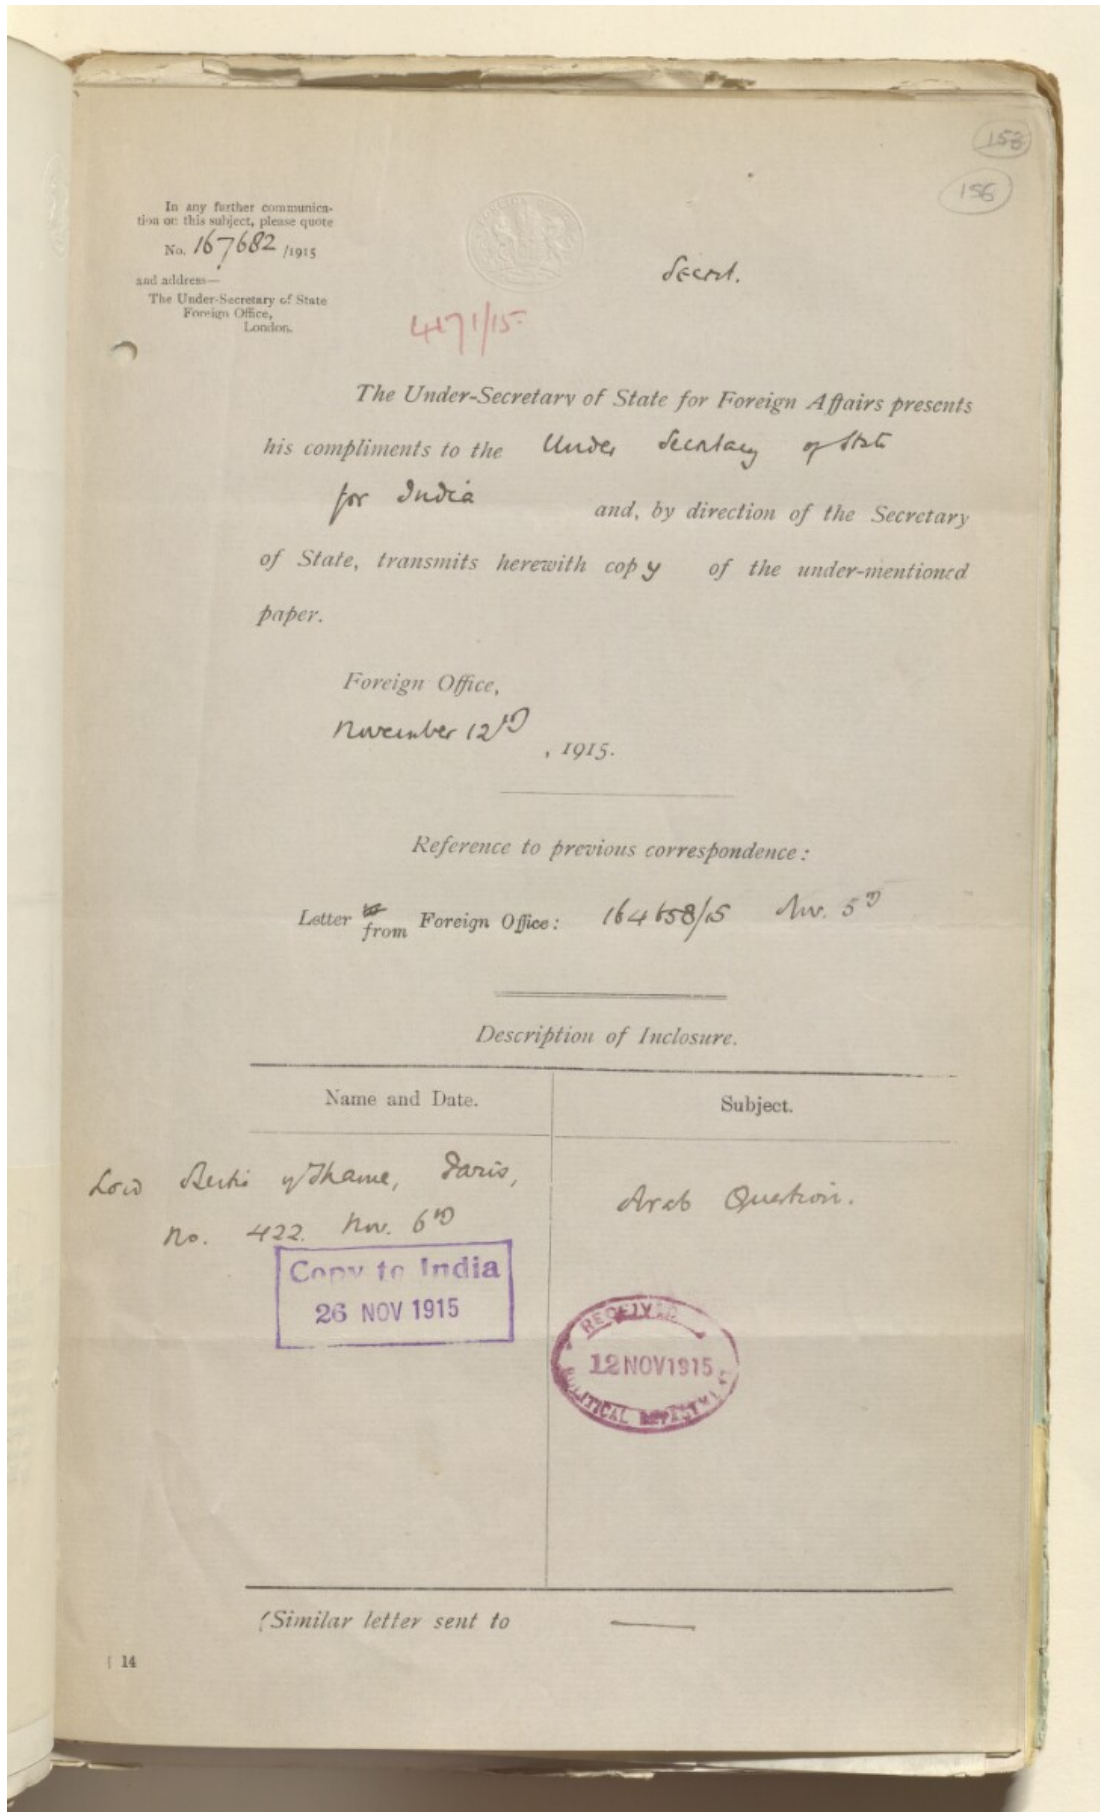 153
156
In any further communica-
tion on this subject, please quote
No. 167682 /1915
and address—
The Under-Secretary of State
Foreign Office,
London.
Secret.
4171/15
The Under-Secretary of State for Foreign Affairs presents
his compliments to the Under Secretary of State
for India and, by direction of the Secretary
of State, transmits herewith copy of the under-mentioned
paper.
Foreign Office,
November 12th
, 1915.
Reference to previous correspondence:
Letter to from Foreign Office: 164658/15 Nov. 5th
Description of Inclosure.
Name and Date.
Subject.
Lord Bertie of Thame, Paris,
No. 422. Nov. 6th
Arab Question.
Copy to India
26 NOV 1915
RECEIVED
12 NOV 1915
POLITICAL DEPARTMENT
(Similar letter sent to —
14